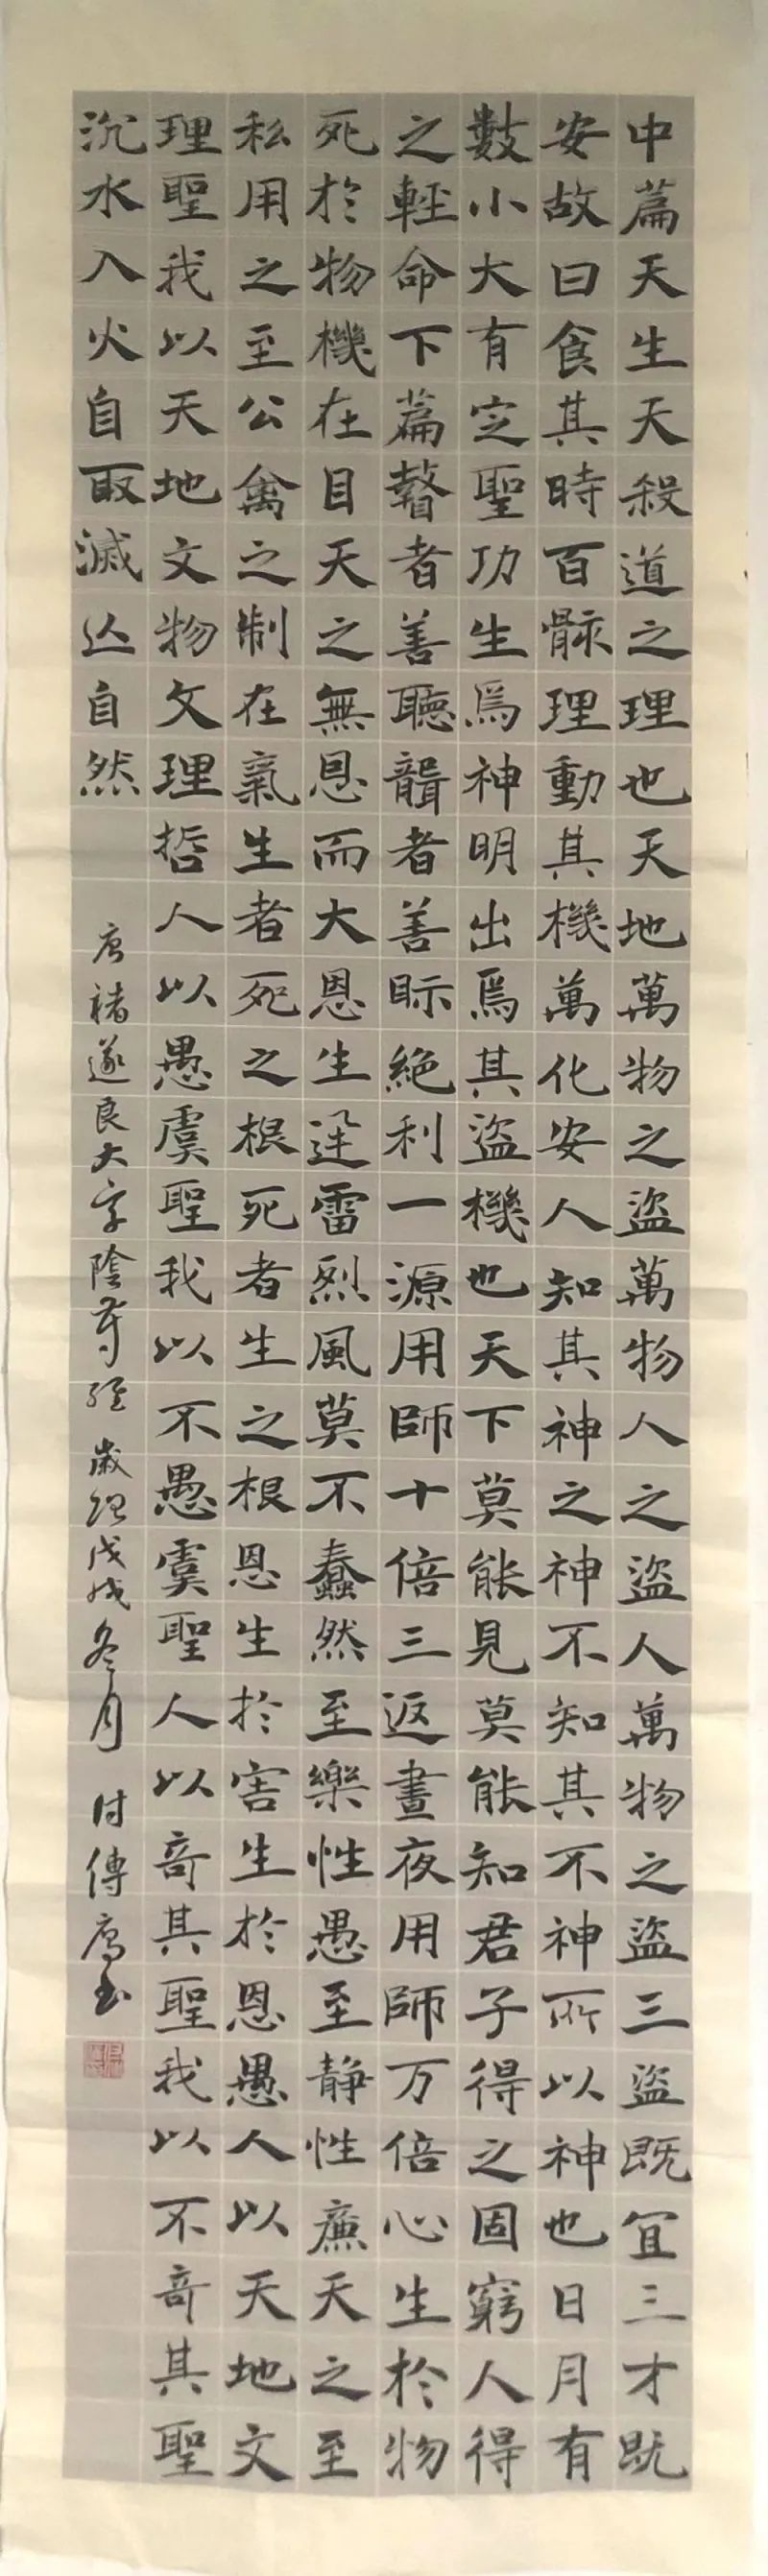 中篇天生天殺道之理也天地萬物之盜萬物人之盜人萬物之盜三盜既宜三才既
安故曰食其時百骸理動其機萬化安人知其神之神不知其不神所以神也日月有
數小大有定聖功生焉神明出焉其盜機也天下莫能見莫能知君子得之固窮人得
之輕命下篇瞽者善聽聾者善眎絕利一源用師十倍三返晝夜用師万倍心生於物
死於物機在目天之無恩而大恩生迅雷烈風莫不蠢然至樂性愚至靜性廉天之至
私用之至公禽之制在氣生者死之根死者生之根恩生於害生於恩愚人以天地文
理聖我以天地文物文理哲人以愚虞聖我以不愚虞聖人以奇其聖我以不奇其聖
沉水入火自取滅亡自然
唐褚遂良大字陰符經 歲次戊戌冬月 付傳鴈書